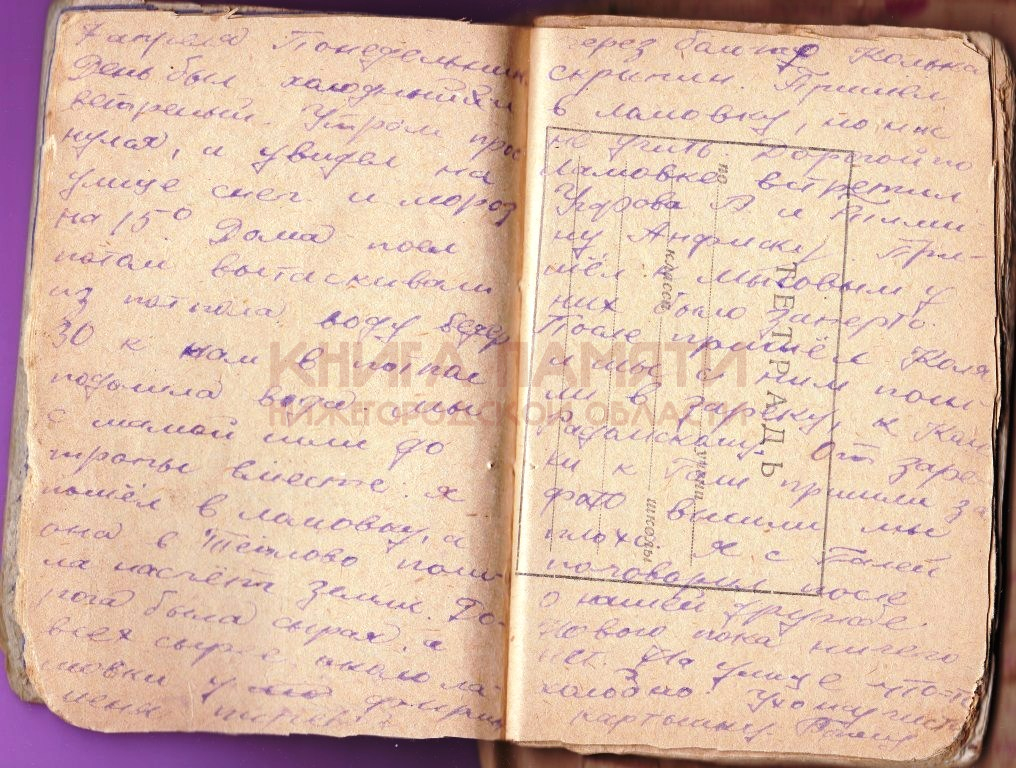 апреля Понедельник
День был холодный и
ветреный. Утром прос
нулся, и увидел на
улице снег и мороз
на 15° Дома поел
потом вытаскивали
из погпола воду
30 к нам в погпол
подошла вода мы
с мамой шли до
тропы вместе. я
пошёл в ламовку, а
она в Тёплово пош-
ла насчёт земли. До-
рога была сырая, а
всех сырее около ла-
мовки у
меня
через Колька
скрипки. Пришёл
в ламовку, но не
Дорогой по
Ламовке встретил
А и
ну Анфиску). При-
шёл к Мысовым у
них было заперто.
После пришёл Коля
и мы с ним пош
ли в Зареку, к Кол
От заре
ки к Гали пришли за
фото вышли мы
плохо. Я с Галей
поговорил после
о нашей дружбе.
Нового пока ничего
нет. На улице что-то
холодно. Ухожу чист
картошку.
ТЕТРАДЬ
по
класса
учени
школы
КНИГА ПАМЯТИ
НИЖЕГОРОДСКОЙ ОБЛАСТИ